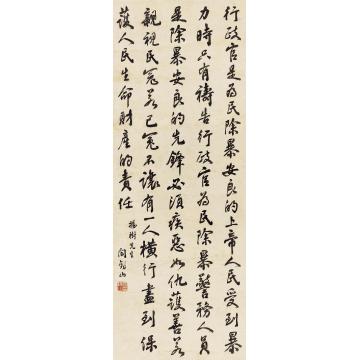 行政官是為民除暴安良的上帝人民受到暴
力時只有禱告行政官為民除暴警務人員
是除暴安良的先鋒必須疾惡如仇護善若
親視民冤若己冤不讓有一人橫行盡到保
護人民生命財產的責任
楊樹先生
閻錫山